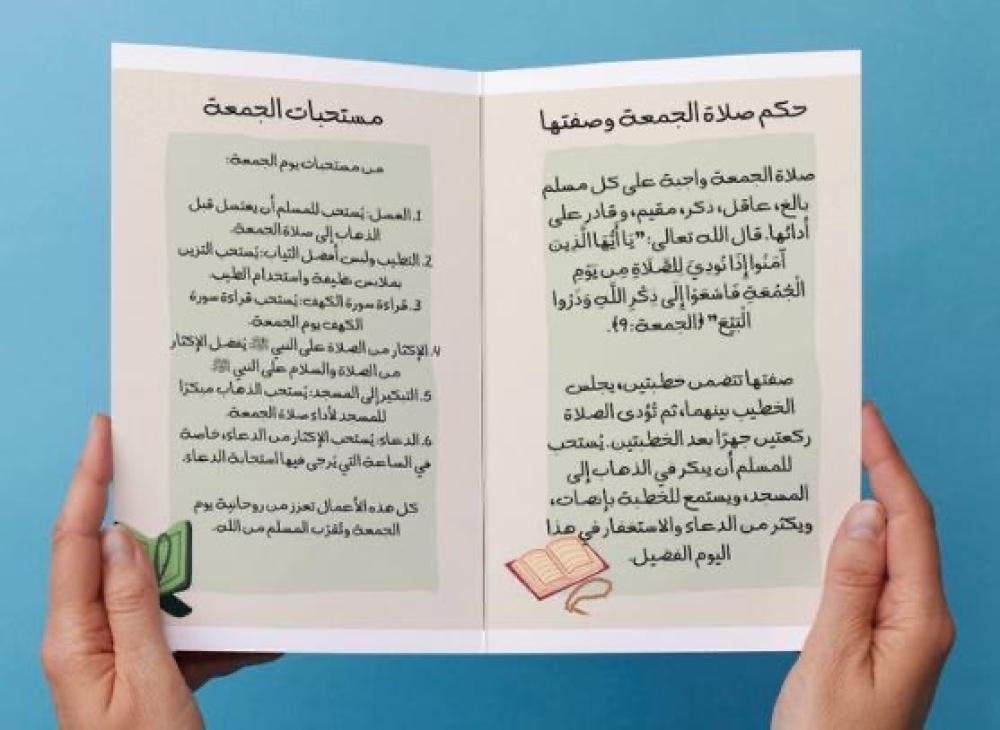 حكم صلاة الجمعة وصفتها
صلاة الجمعة واجبة على كل مسلم
بالغ، عاقل، ذكر، مقيم، وقادر على
أدائها. قال الله تعالى: "يَا أَيُّهَا الَّذِينَ
آمَنُوا إِذَا نُودِيَ لِلصَّلَاةِ مِن يَوْمِ
الْجُمُعَةِ فَاسْعَوْا إِلَى ذِكْرِ اللَّهِ وَذَرُوا
الْبَيْعَ" (الجمعة: 9).
صفتها تتضمن خطبتين، يجلس
الخطيب بينهما، ثم تُؤدى الصلاة
ركعتين جهرًا بعد الخطبتين. يُستحب
للمسلم أن يبكر في الذهاب إلى
المسجد، ويستمع للخطبة بإنصات،
ويكثر من الدعاء والاستغفار في هذا
اليوم الفضيل.
مستحبات الجمعة
من مستحبات يوم الجمعة:
1. الغسل: يُستحب للمسلم أن يغتسل قبل
الذهاب إلى صلاة الجمعة.
2. التطيب ولبس أفضل الثياب: يُستحب التزين
بملابس نظيفة واستخدام الطيب.
3. قراءة سورة الكهف: يُستحب قراءة سورة
الكهف يوم الجمعة.
4. الإكثار من الصلاة على النبي ﷺ: يُفضل الإكثار
من الصلاة والسلام على النبي ﷺ
5. التبكير إلى المسجد: يُستحب الذهاب مبكرًا
للمسجد لأداء صلاة الجمعة.
6. الدعاء: يُستحب الإكثار من الدعاء، خاصة
في الساعة التي يُرجى فيها استجابة الدعاء.
كل هذه الأعمال تعزز من روحانية يوم
الجمعة وتُقرّب المسلم من الله.